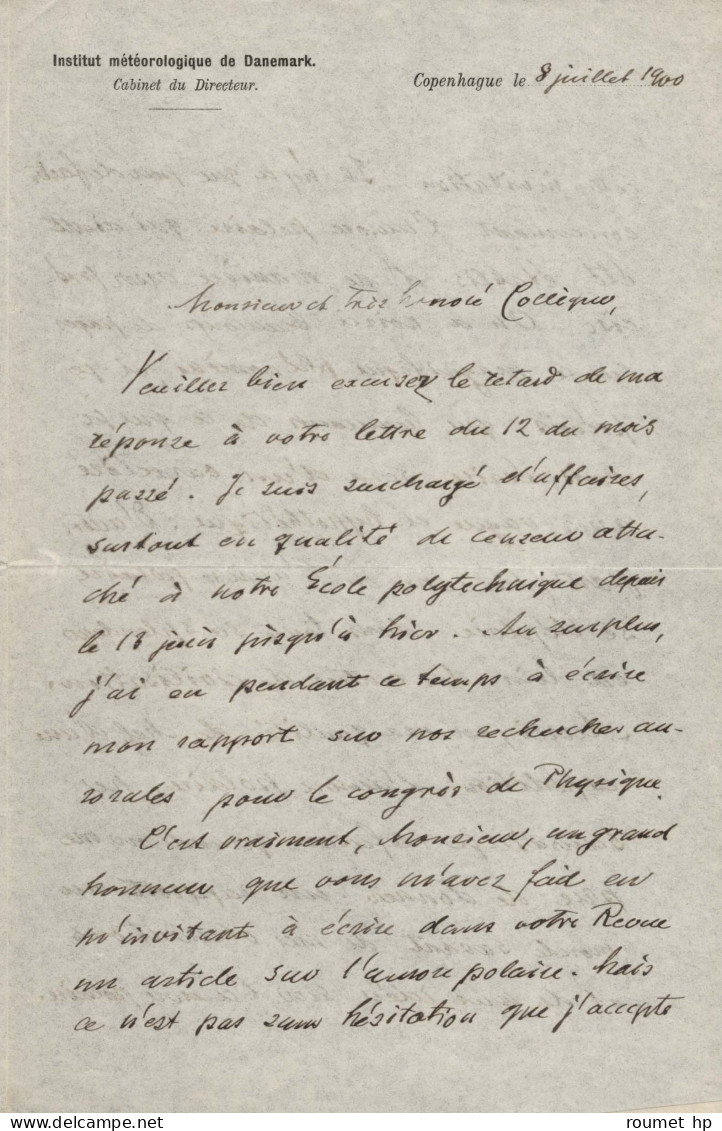 Institut météorologique de Danemark.
Cabinet du Directeur.
Copenhague le 8 juillet 1900
Monsieur et très honoré Collègue,
Veuillez bien excuser le retard de ma
réponze à votre lettre du 12 du mois
passé. Je suis surchargé d'affaires,
surtout en qualité de censeur atta-
ché à notre École polytechnique depuis
le 18 juin jusqu'à hier. Au surplus,
j'ai eu pendant ce temps à écrire
mon rapport sur nos recherches au-
rorales pour le congrès de Physique.
C'est vraiment, Monsieur, un grand
honneur que vous m'avez fait en
m'invitant à écrire dans votre Revue
un article sur l'aurore polaire. Mais
ce n'est pas sans hésitation que j'accepte
roumet hp